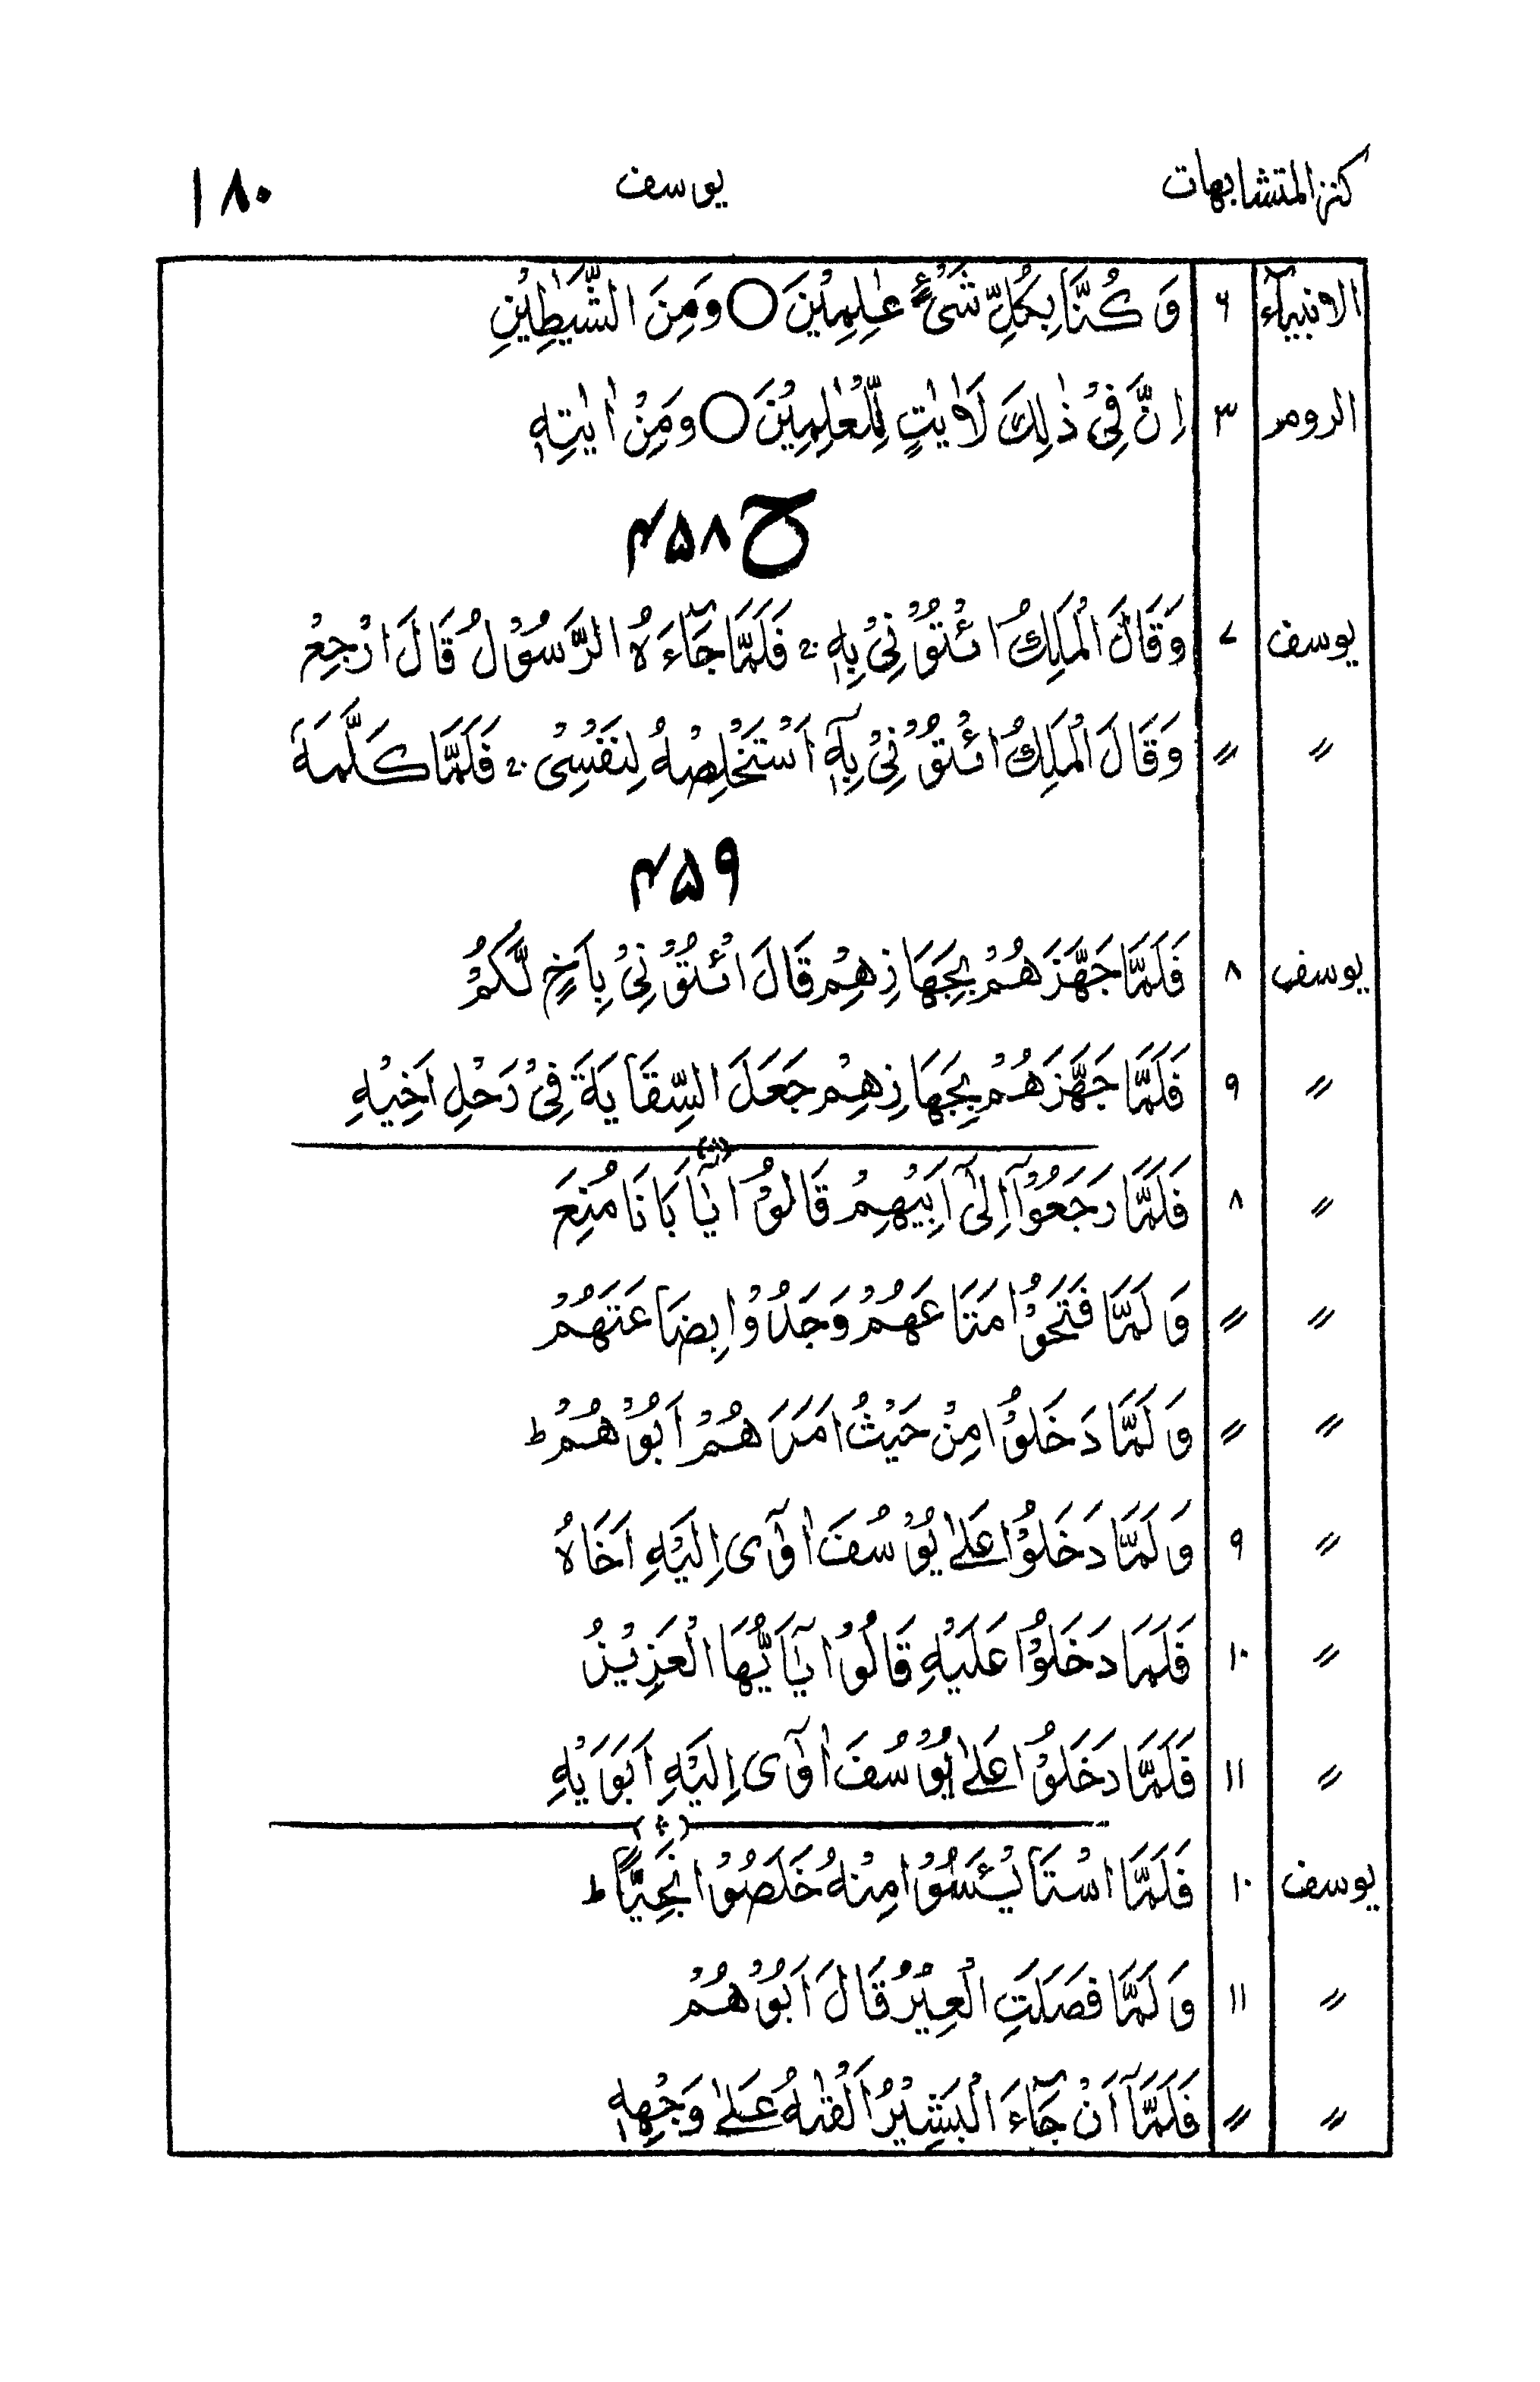 كنز المتشابهات يوسف ۱۸۰
الانبیآء ۶ وَ كُنَّا بِكُلِّ شَیْءٍ عٰلِمِیْنَ ○ وَ مِنَ الشَّیٰطِیْنِ
الروم ۳ اِنَّ فِیْ ذٰلِكَ لَاٰیٰتٍ لِّلْعٰلِمِیْنَ ○ وَ مِنْ اٰیٰتِهٖ
ح ۴۵۸
یوسف ۷ وَقَالَ الْمَلِكُ ائْتُوْنِیْ بِهٖ ۚ فَلَمَّا جَآءَهُ الرَّسُوْلُ قَالَ ارْجِعْ
〃 〃 وَقَالَ الْمَلِكُ ائْتُوْنِیْ بِهٖۤ اَسْتَخْلِصْهُ لِنَفْسِیْ ۚ فَلَمَّا كَلَّمَهٗ
۴۵۹
یوسف ۸ فَلَمَّا جَهَّزَهُمْ بِجَهَازِهِمْ قَالَ ائْتُوْنِیْ بِاَخٍ لَّكُمْ
〃 ۹ فَلَمَّا جَهَّزَهُمْ بِجَهَازِهِمْ جَعَلَ السِّقَایَةَ فِیْ رَحْلِ اَخِیْهِ
〃 ۸ فَلَمَّا رَجَعُوْۤا اِلٰۤی اَبِیْهِمْ قَالُوْا یٰۤاَبَانَا مُنِعَ
〃 〃 وَ لَمَّا فَتَحُوْا مَتَاعَهُمْ وَجَدُوْا بِضَاعَتَهُمْ
〃 〃 وَ لَمَّا دَخَلُوْا مِنْ حَیْثُ اَمَرَهُمْ اَبُوْهُمْ ؕ
〃 ۹ وَ لَمَّا دَخَلُوْا عَلٰی یُوْسُفَ اٰوٰۤی اِلَیْهِ اَخَاهُ
〃 ۱۰ فَلَمَّا دَخَلُوْا عَلَیْهِ قَالُوْا یٰۤاَیُّهَا الْعَزِیْزُ
〃 ۱۱ فَلَمَّا دَخَلُوْا عَلٰی یُوْسُفَ اٰوٰۤی اِلَیْهِ اَبَوَیْهِ
یوسف ۱۰ فَلَمَّا اسْتَایْـَٔسُوْا مِنْهُ خَلَصُوْا نَجِیًّا ؕ
〃 ۱۱ وَ لَمَّا فَصَلَتِ الْعِیْرُ قَالَ اَبُوْهُمْ
〃 〃 فَلَمَّاۤ اَنْ جَآءَ الْبَشِیْرُ اَلْقٰىهُ عَلٰی وَجْهِهٖ